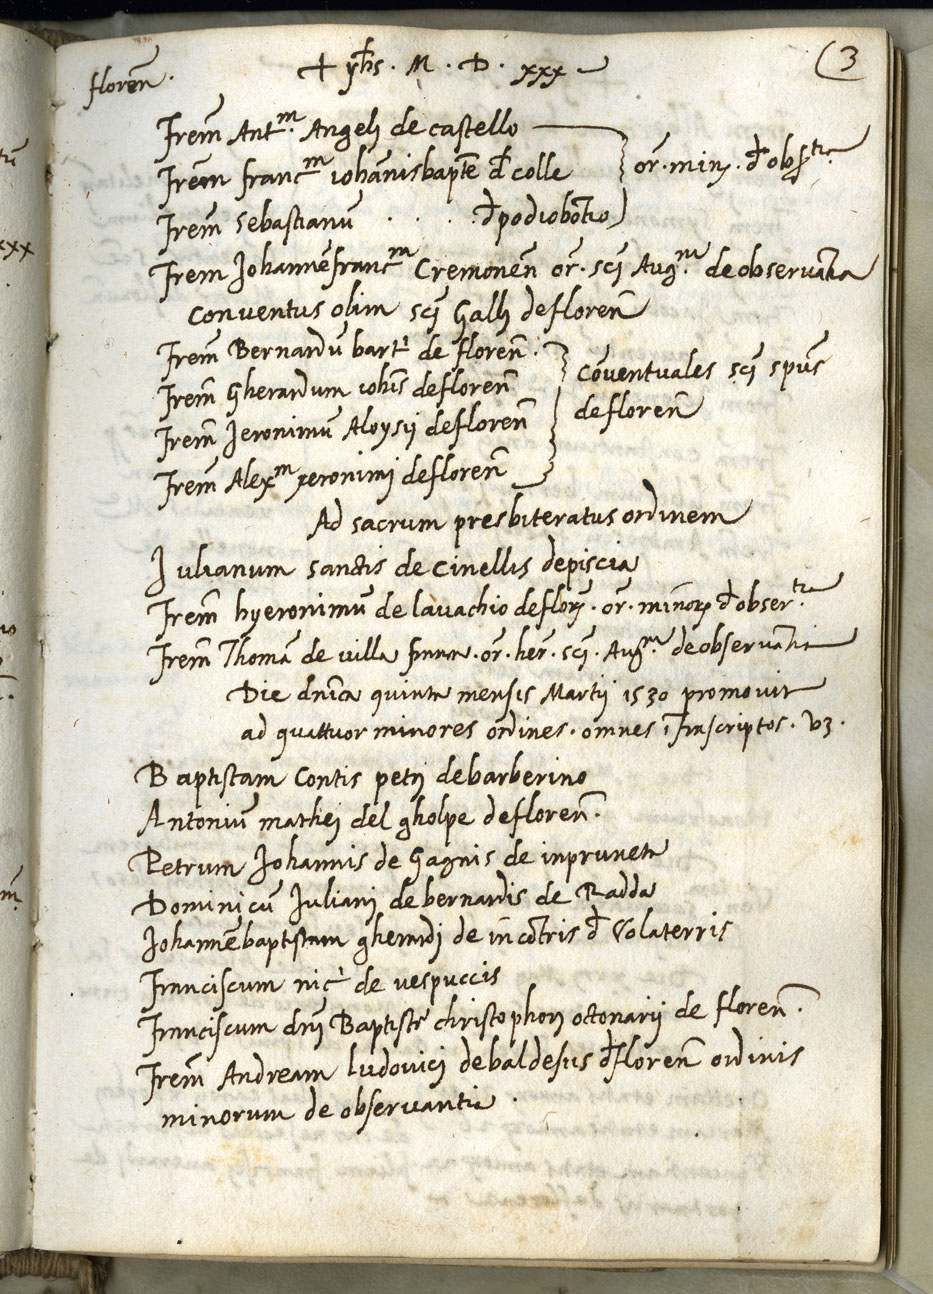 floreñ.
+ yhs . M . D . xxx
(3
Frem̃ Antm. Angeli de castello
Frem̃ francm iohānisbaptē đ colle
or̃ . min̨ . đ obs.tia
Frem̃ sebastianū . . . đ podiobōtio
Frem Johannēfrancm Cremoneñ or̃ . sc̃i Aug.ni de observātia
conventus olim sc̃i Galli de floreñ
Frem̃ Bernardū bart.i de floreñ .
Frem̃ Gherardum iohis de floreñ
cōventuales sc̃i sp̃us
de floreñ
Frem̃ Jeronimū Aloysij de floreñ
Frem̃ Alexm yeronimi de floreñ
Ad sacrum presbiteratus ordinem
Julianum sanctis de cinellis de piscia
Frem̃ hyeronimū de lavachio de flor̃ . or̃ . minor̃ đ obser.tia
Frem̃ Thomā de villa franca . or̃ . her̃ . sc̃i . Aug.ni de observāti
Die dn̄ica quinta mensis Martij 1530 promovit
ad quattuor minores ordines . omnes īfrascriptos . vz .
Baptistam Contis petrj de barberino
Antoniū mathej del gholpe de floreñ .
Petrum Johannis de Gagnis de inpruneta
Dominicū Julianj de bernardis de Radda
Johannēbaptistam gherardj de incōtris đ Volaterris
Franciscum nic.i de vespuccis
Franciscum dnj Baptiste christophorj ottonarij de floreñ .
Frem̃ Andream ludovici de baldesus đ floreñ ordinis
minorum de observantia .